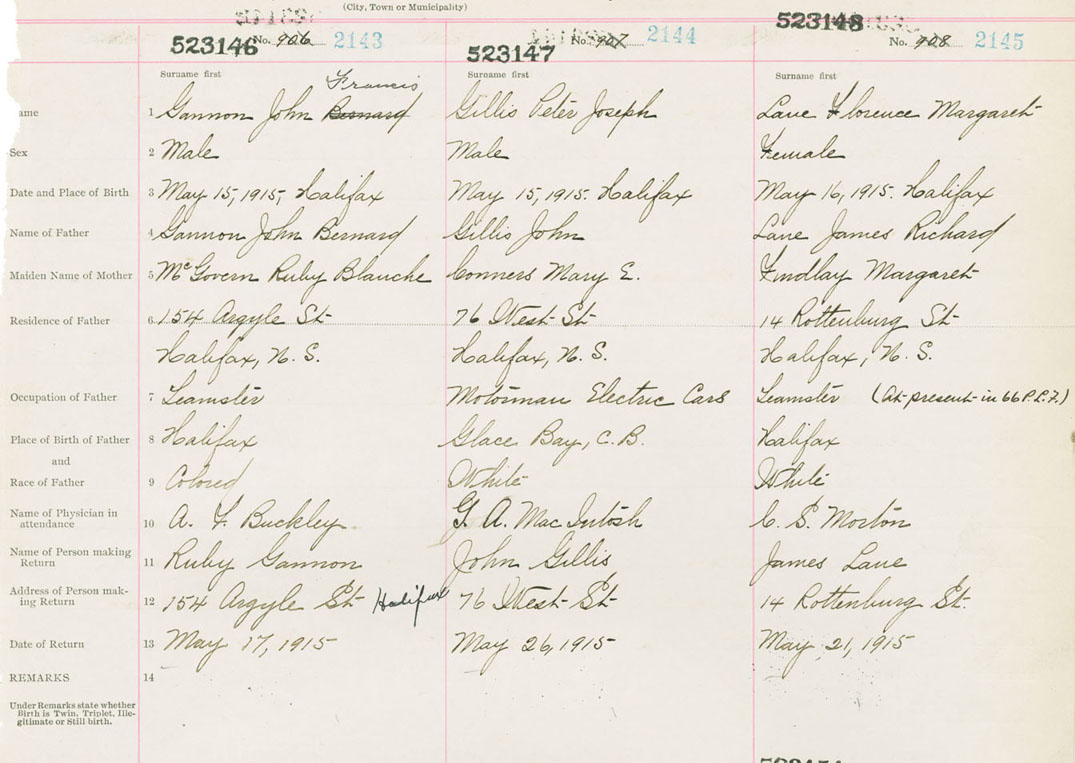 (City, Town or Municipality)
523146 No. 906 2143
523147 No. 907 2144
523148 No. 908 2145
Surname first Surname first Surname first
Francis
ame 1 Gannon John Bernard Gillis Peter Joseph Lane Florence Margaret
Sex 2 Male Male Female
Date and Place of Birth 3 May 15, 1915, Halifax May 15, 1915. Halifax May 16, 1915. Halifax
Name of Father 4 Gannon John Bernard Gillis John Lane James Richard
Maiden Name of Mother 5 McGovern Ruby Blanche Conners Mary E. Findlay Margaret
Residence of Father 6 154 Argyle St 76 West St 14 Rottenburg St
Halifax, N. S. Halifax, N. S. Halifax, N. S.
Occupation of Father 7 Teamster Motorman Electric Cars Teamster (At present in 66 P.L.F.)
Place of Birth of Father 8 Halifax Glace Bay, C.B. Halifax
and
Race of Father 9 Colored White White
Name of Physician in
attendance 10 A. F. Buckley G. A. MacIntosh C. S. Morton
Name of Person making
Return 11 Ruby Gannon John Gillis James Lane
Address of Person mak-
ing Return 12 154 Argyle St Halifax 76 West St 14 Rottenburg St.
Date of Return 13 May 17, 1915 May 26, 1915 May 21, 1915
REMARKS 14
Under Remarks state whether
Birth is Twin, Triplet, Ille-
gitimate or Still birth.